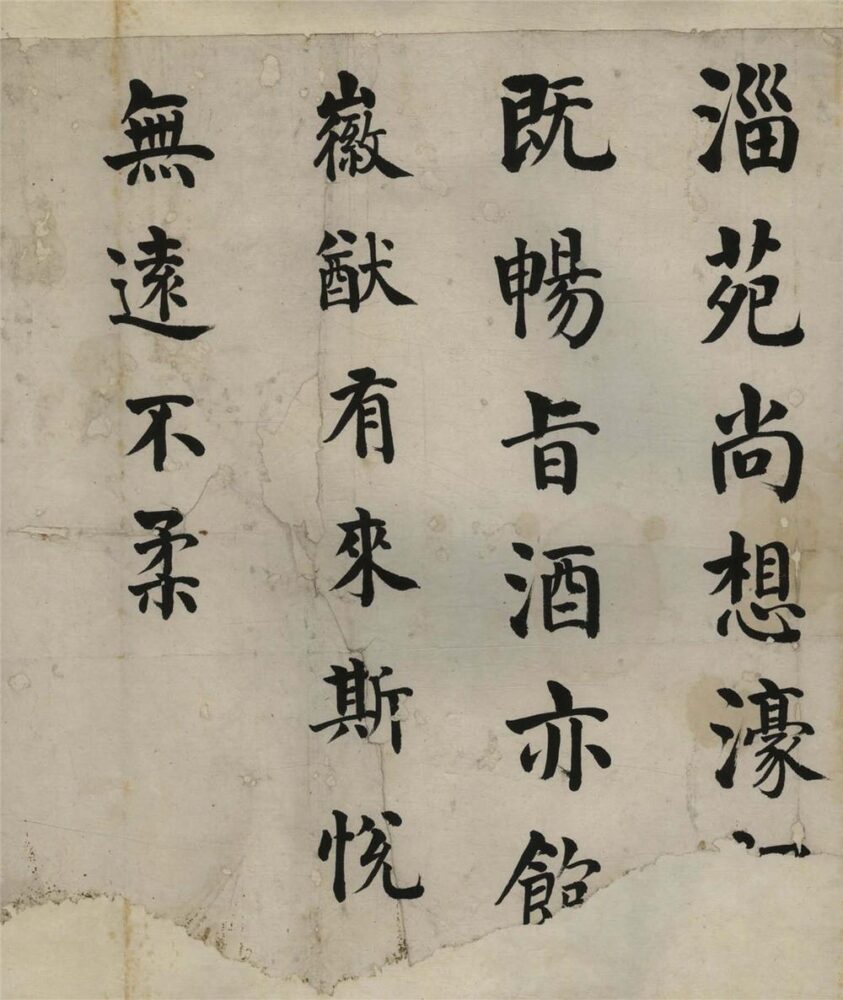 淄苑尚想濠
既暢旨酒亦飽
徽猷有來斯悅
無遠不柔